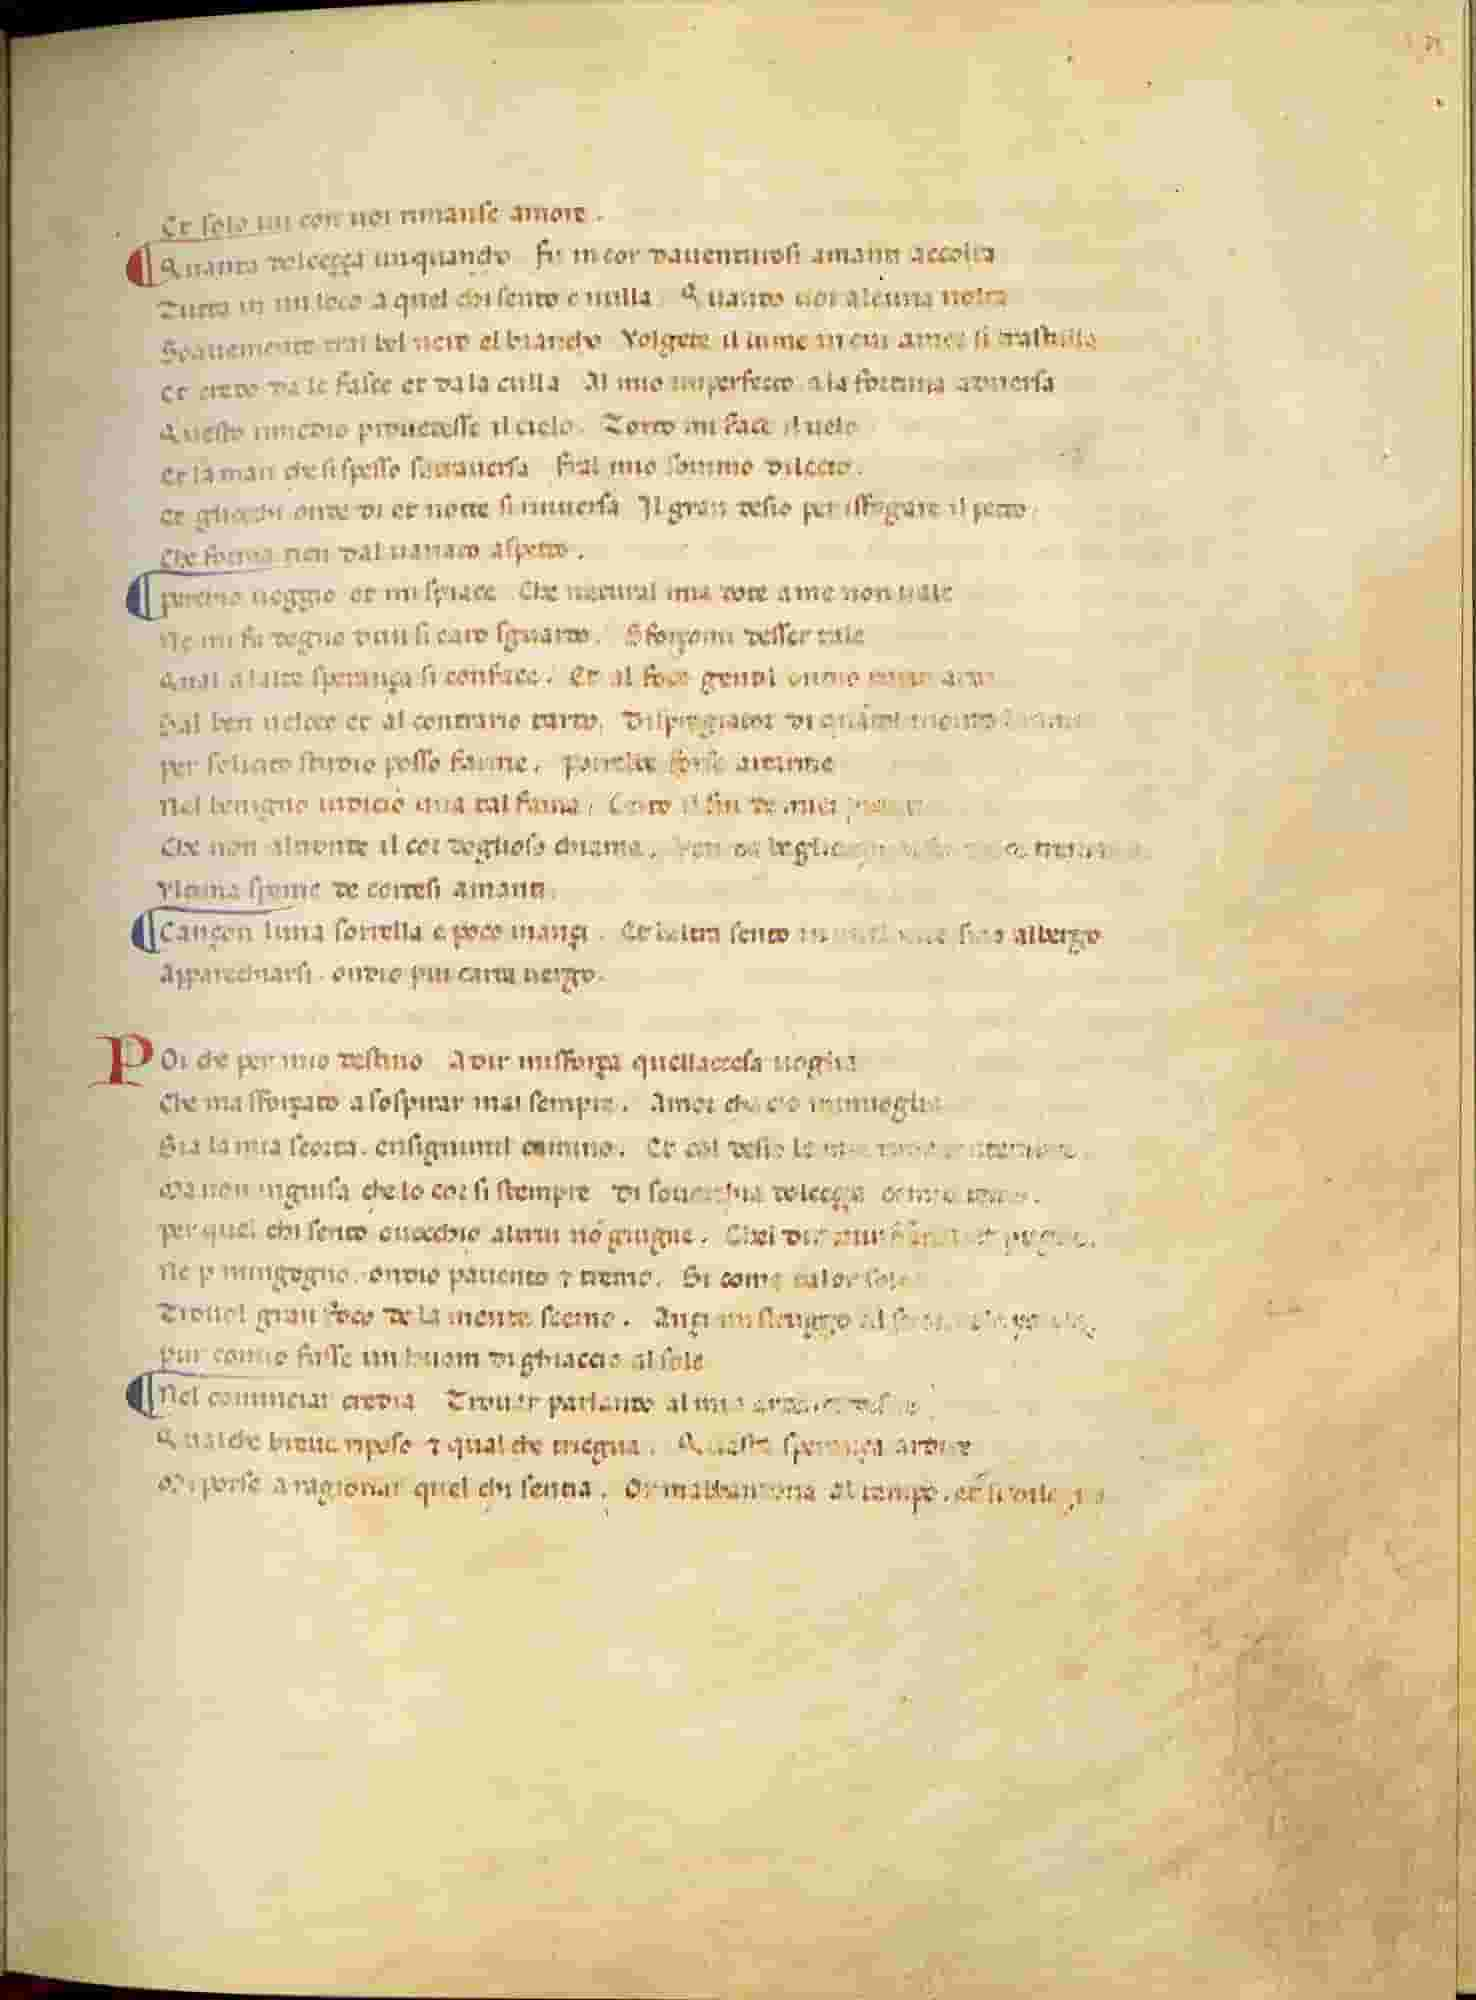 Et solo iui con uoi rimanse amore.
Quanta dolceçça unquancho fu in cor dauenturosi amanti accolta
Tutta in un loco a quel chi sento e nulla. Quando uoi alcuna uolta
Soauemente tral bel nero el biancho Volgete il lume in cui amor si trastulla
Et credo da le fasce et da la culla Al mio imperfecto. a la fortuna aduersa
Questo rimedio prouedesse il cielo. Torto mi face il uelo
Et la man che si spesso sattrauersa Fral mio sommo dilecto.
Et gliocchi onde di et notte si rinuersa Il gran desio per isfogare il petto.
Che forma tien dal uariato aspetto.
perchio ueggio et mi spiace. Che natural mia dote a me non uale
Ne mi fa degno dun si caro sguardo. Sforçomi desser tale
Qual a lalta sperança si conface. Et al foco gentil ondio tutto ardo
Sal ben ueloce et al contrario tardo. Dispregiator di quãto
per solicito studio posso farme. potrebbe forse aitarme
Nel benigno iudicio una tal fama. Certo il fin de miei
Che non altronde il cor doglioso chiama. Ven da begliocchi
Vltima speme de cortesi amanti.
Cançon luna sorella e poco inançi. Et laltra sento in albergo
Apparechiarsi. ondio piu carta uergo.
POi che per mio destino A dir mi sforça quellaccesa uoglia
Che ma sforçato a sospirar mai sempre. Amor cha cio minuoglia
Sia la mia scorta. ensignimil camino. Et col desio le mie rime contempre.
Ma non inguisa che lo cor si stempre Di souerchia dolceçça comio temo.
per quel chi sento ouocchio altrui nõ giugne. Chel dir
Ne p mingegno. ondio pauento ⁊ tremo. Si come talor sole
Trouol gran foco de la mente scemo. Ançi mi struggo al suon
pur comio fusse un huom di ghiaccio al sole
Nel cominciar credia Trouar parlando al mio ardente desire
Qualche breue riposo ⁊ qualche triegua. Questa sperança ardire
Mi porse a ragionar quel chi sentia. Or mabbandona al tempo. et si